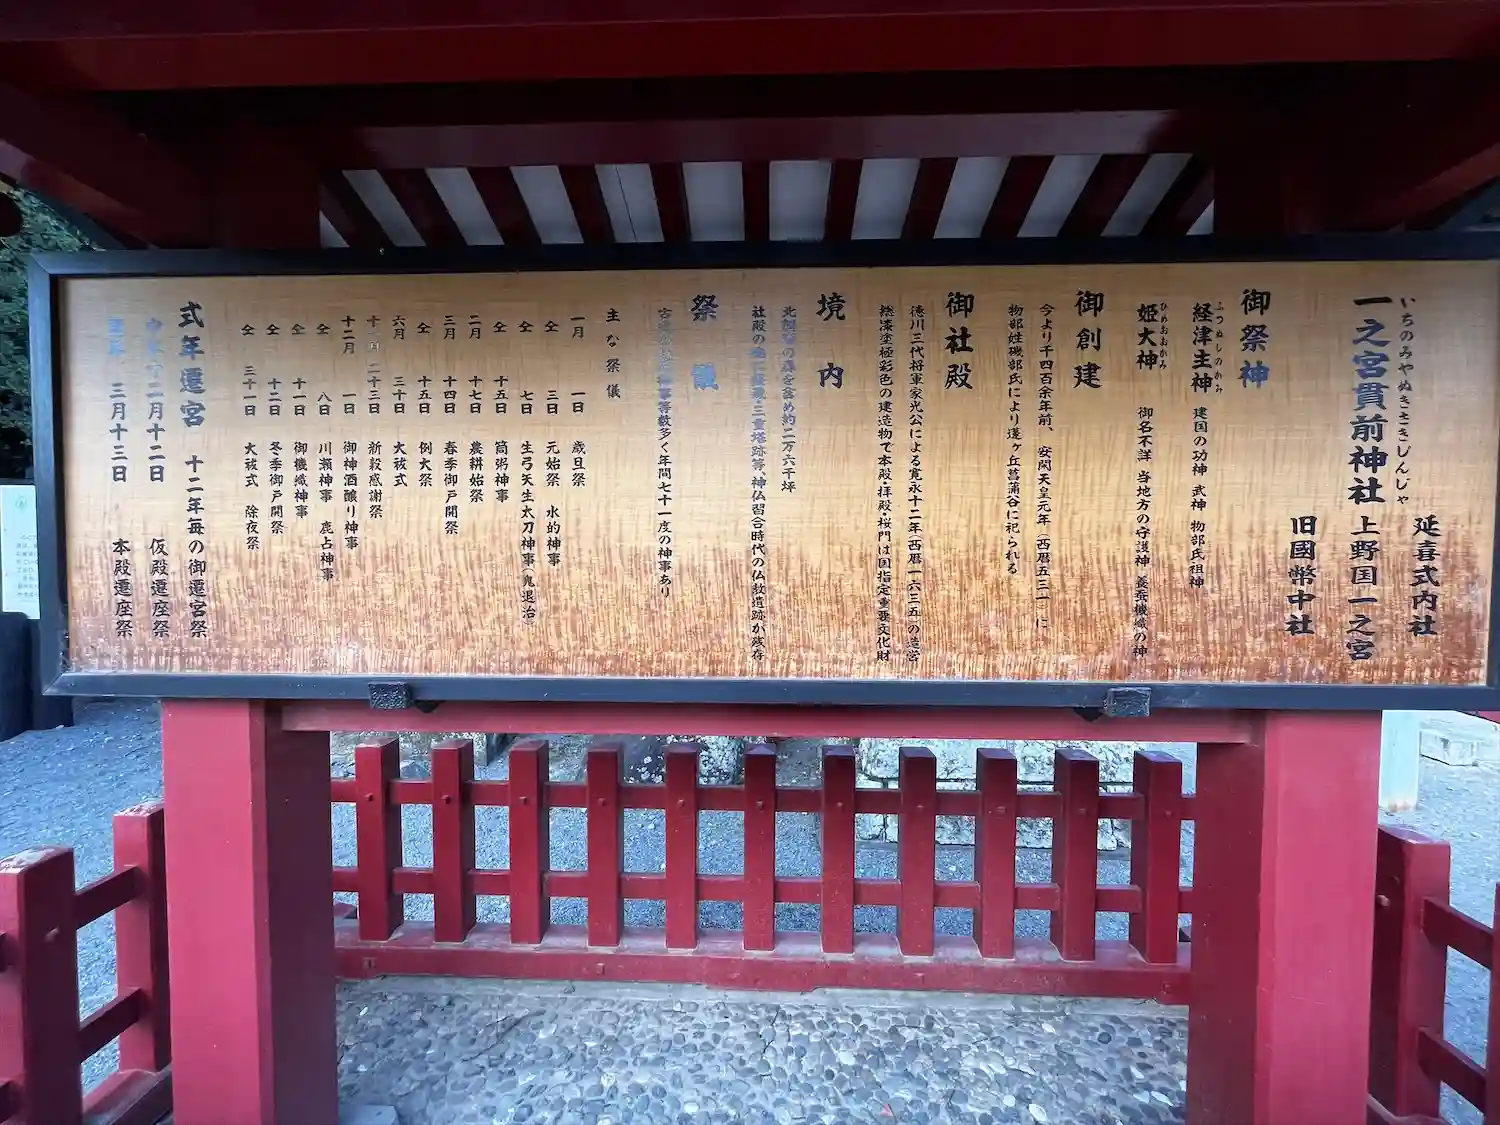 いちのみやぬきさきじんじゃ
一之宮貫前神社
延喜式内社
上野国一之宮
旧國幣中社
御祭神
ふつぬしのかみ
経津主神 建国の功神 武神 物部氏祖神
ひめおおかみ
姫大神 御名不詳 当地方の守護神 養蚕機織の神
御創建
今より千四百余年前、安閑天皇元年(西暦五三一)に
物部姓磯部氏により蓬ヶ丘菖蒲谷に祀られる
御社殿
徳川三代将軍家光公による寛永十二年(西暦一六三五)の造営
総漆塗極彩色の建造物で本殿・拝殿・楼門は国指定重要文化財
境内
の森を含め約二万六千坪
社殿の他に経蔵・三重塔跡等、神仏習合時代の仏教遺跡が残存
祭儀
神事等数多く年間七十一度の神事あり
主な祭儀
一月 一日 歳旦祭
仝 三日 元始祭 水的神事
仝 七日 生弓矢生太刀神事(鬼退治)
仝 十五日 筒粥神事
二月 十七日 農耕始祭
三月 十四日 春季御戸開祭
仝 十五日 例大祭
六月 三十日 大祓式
十一月 二十三日 新穀感謝祭
十二月 一日 御神酒醸り神事
仝 八日 川瀬神事 鹿占神事
仝 十一日 御機織神事
仝 十二日 冬季御戸開祭
仝 三十一日 大祓式 除夜祭
式年遷宮 十二年毎の御遷宮祭
二月十二日 仮殿遷座祭
三月十三日 本殿遷座祭